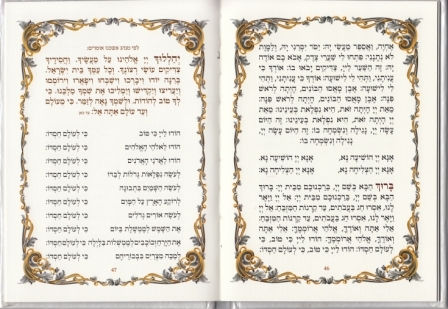 אֶחְיֶה, וַאֲסַפֵּר מַעֲשֵׂי יָהּ: יַסֹּר יִסְּרַנִּי יָּהּ, וְלַמָּוֶת
לֹא נְתָנָנִי: פִּתְחוּ לִי שַׁעֲרֵי צֶדֶק, אָבֹא בָם אוֹדֶה
יָהּ: זֶה הַשַּׁעַר לַיְיָ, צַדִּיקִים יָבֹאוּ בוֹ: אוֹדְךָ כִּי
עֲנִיתָנִי, וַתְּהִי לִי לִישׁוּעָה: אוֹדְךָ כִּי עֲנִיתָנִי, וַתְּהִי
לִי לִישׁוּעָה: אֶבֶן מָאֲסוּ הַבּוֹנִים, הָיְתָה לְרֹאשׁ
פִּנָּה: אֶבֶן מָאֲסוּ הַבּוֹנִים, הָיְתָה לְרֹאשׁ פִּנָּה:
מֵאֵת יְיָ הָיְתָה זֹּאת, הִיא נִפְלָאת בְּעֵינֵינוּ: מֵאֵת
יְיָ הָיְתָה זֹּאת, הִיא נִפְלָאת בְּעֵינֵינוּ: זֶה הַיּוֹם עָשָׂה
יְיָ, נָגִילָה וְנִשְׂמְחָה בוֹ: זֶה הַיּוֹם עָשָׂה יְיָ, נָגִילָה
וְנִשְׂמְחָה בוֹ:
אָנָּא יְיָ הוֹשִׁיעָה נָּא, אָנָּא יְיָ הוֹשִׁיעָה נָּא,
אָנָּא יְיָ הַצְלִיחָה נָא, אָנָּא יְיָ הַצְלִיחָה נָא:
בָּרוּךְ הַבָּא בְּשֵׁם יְיָ, בֵּרַכְנוּכֶם מִבֵּית יְיָ: בָּרוּךְ
הַבָּא בְּשֵׁם יְיָ, בֵּרַכְנוּכֶם מִבֵּית יְיָ: אֵל יְיָ וַיָּאֶר
לָנוּ, אִסְרוּ חַג בַּעֲבֹתִים, עַד קַרְנוֹת הַמִּזְבֵּחַ: אֵל יְיָ
וַיָּאֶר לָנוּ, אִסְרוּ חַג בַּעֲבֹתִים, עַד קַרְנוֹת הַמִּזְבֵּחַ:
אֵלִי אַתָּה וְאוֹדֶךָּ, אֱלֹהַי אֲרוֹמְמֶךָּ: אֵלִי אַתָּה
וְאוֹדֶךָּ, אֱלֹהַי אֲרוֹמְמֶךָּ: הוֹדוּ לַיְיָ כִּי טוֹב, כִּי
לְעוֹלָם חַסְדּוֹ: הוֹדוּ לַיְיָ כִּי טוֹב, כִּי לְעוֹלָם חַסְדּוֹ:
46
לפי מנהג אשכנז אומרים:
יְהַלְלוּךָ יְיָ אֱלֹהֵינוּ עַל מַעֲשֶׂיךָ. וַחֲסִידֶיךָ
צַדִּיקִים עוֹשֵׂי רְצוֹנֶךָ. וְכָל עַמְּךָ בֵּית יִשְׂרָאֵל.
בְּרִנָּה יוֹדוּ וִיבָרְכוּ וִישַׁבְּחוּ וִיפָאֲרוּ וִירוֹמְמוּ
וְיַעֲרִיצוּ וְיַקְדִּישׁוּ וְיַמְלִיכוּ אֶת שִׁמְךָ מַלְכֵּנוּ. כִּי
לְךָ טוֹב לְהוֹדוֹת. וּלְשִׁמְךָ נָאֶה לְזַמֵּר. כִּי מֵעוֹלָם
וְעַד עוֹלָם אַתָּה אֵל:
הוֹדוּ לַיְיָ כִּי טוֹב כִּי לְעוֹלָם חַסְדּוֹ:
הוֹדוּ לֵאלֹהֵי הָאֱלֹהִים כִּי לְעוֹלָם חַסְדּוֹ:
הוֹדוּ לַאֲדֹנֵי הָאֲדֹנִים כִּי לְעוֹלָם חַסְדּוֹ:
לְעֹשֵׂה נִפְלָאוֹת גְּדֹלוֹת לְבַדּוֹ כִּי לְעוֹלָם חַסְדּוֹ:
לְעֹשֵׂה הַשָּׁמַיִם בִּתְבוּנָה כִּי לְעוֹלָם חַסְדּוֹ:
לְרוֹקַע הָאָרֶץ עַל הַמָּיִם כִּי לְעוֹלָם חַסְדּוֹ:
לְעֹשֵׂה אוֹרִים גְּדֹלִים כִּי לְעוֹלָם חַסְדּוֹ:
אֶת הַשֶּׁמֶשׁ לְמֶמְשֶׁלֶת בַּיּוֹם כִּי לְעוֹלָם חַסְדּוֹ:
אֶת הַיָּרֵחַ וְכוֹכָבִים לְמֶמְשְׁלוֹת בַּלָּיְלָה כִּי לְעוֹלָם חַסְדּוֹ:
לְמַכֵּה מִצְרַיִם בִּבְכוֹרֵיהֶם כִּי לְעוֹלָם חַסְדּוֹ:
47